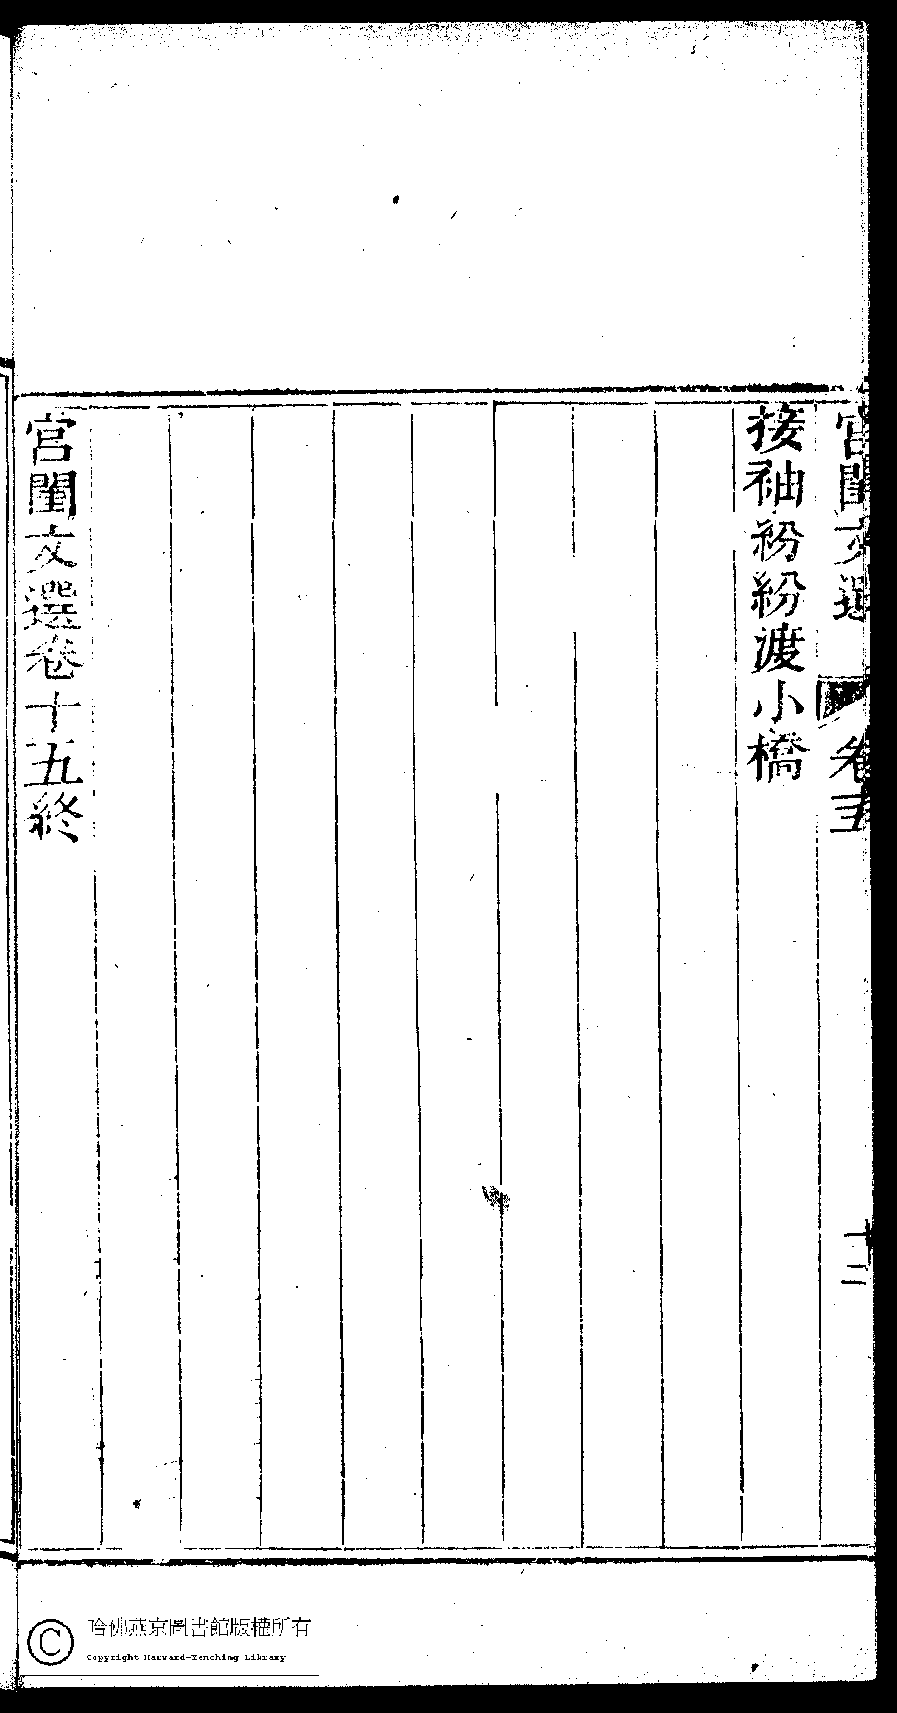 宮閨文選 卷十五 十二
接袖紛紛渡小橋
宮閨文選卷十五終
哈佛燕京圖書館版權所有
Copyright Harvard-Yenching Library